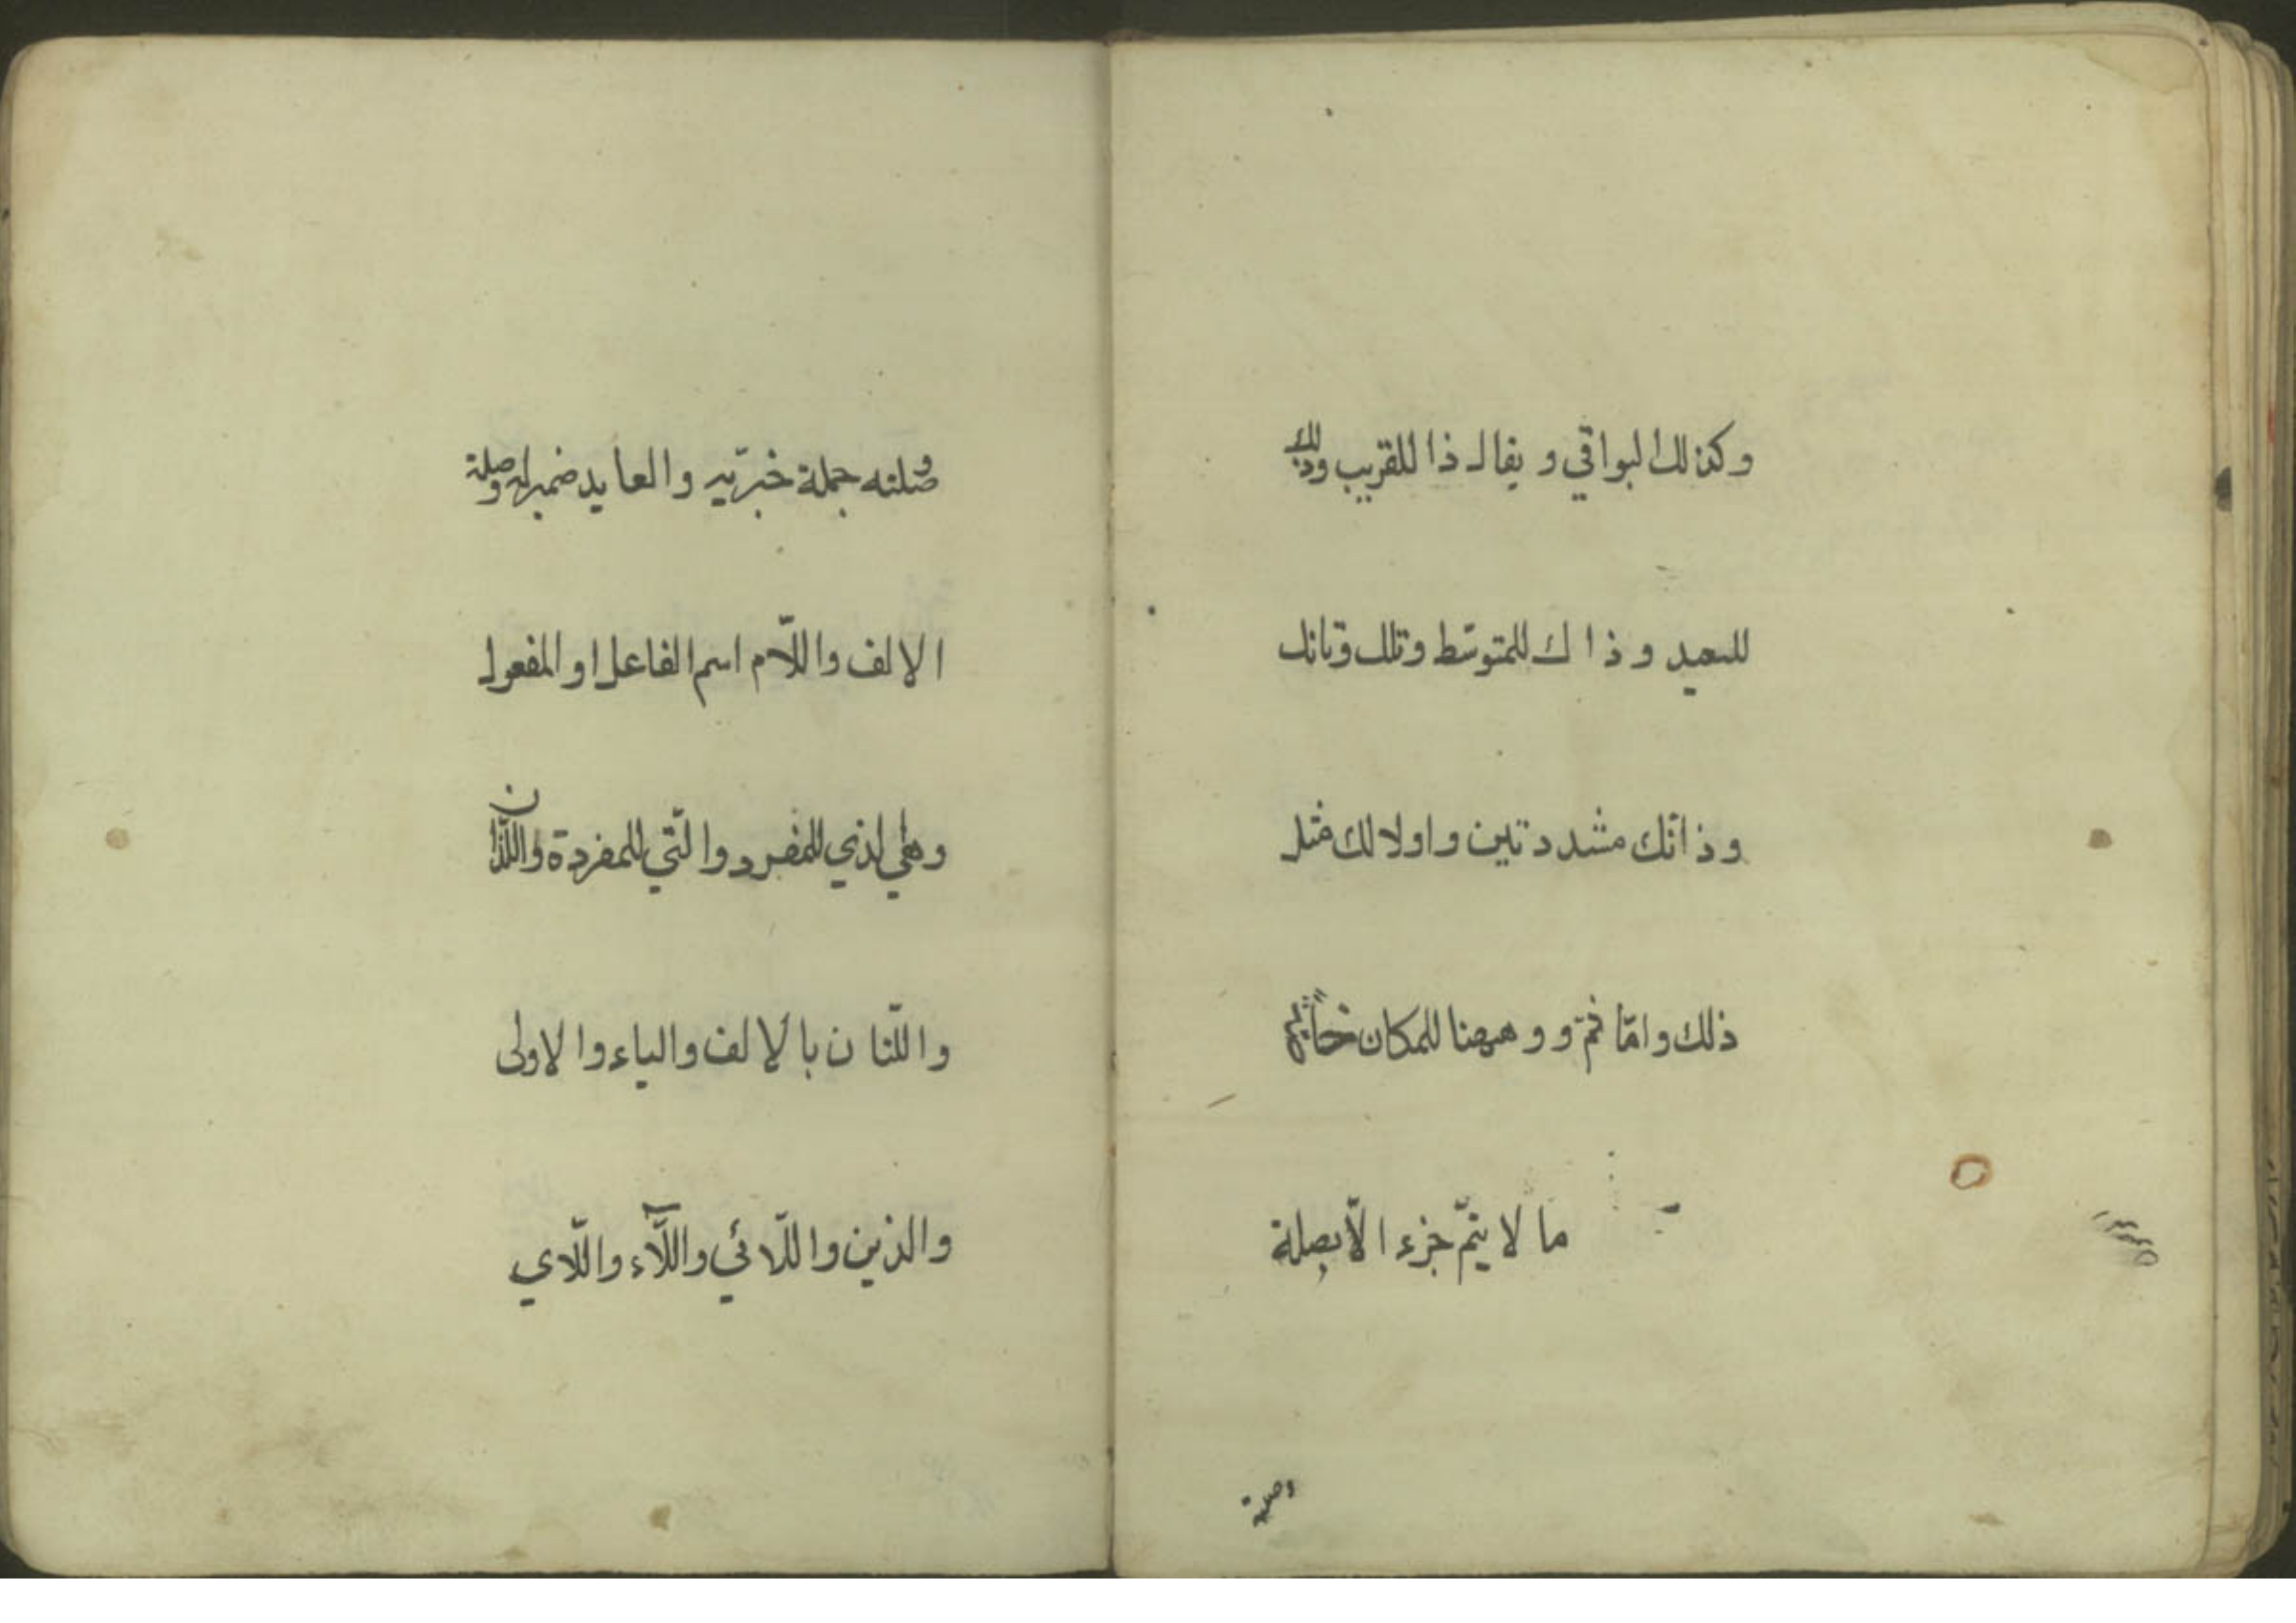 وكذلك البواقي ويقال ذا للقريب وذلك
للبعيد وذاك للمتوسّط وتلك وتانّك
وذانّك مشددتين واولالك مثل
ذلك وامّا ثمّ و وههنا للمكان خاصّة
ما لا يتمّ جزء الّا بصلة
وصلته
وصلته جملة خبريّه والعايد ضمير له وصلة
الالف واللّام اسم الفاعل او المفعول
وهي الذي للمفرد والّتي للمفردة واللّذان
واللّتان بالالف والياء والاولى
والذين واللّائي واللّآء واللّاي